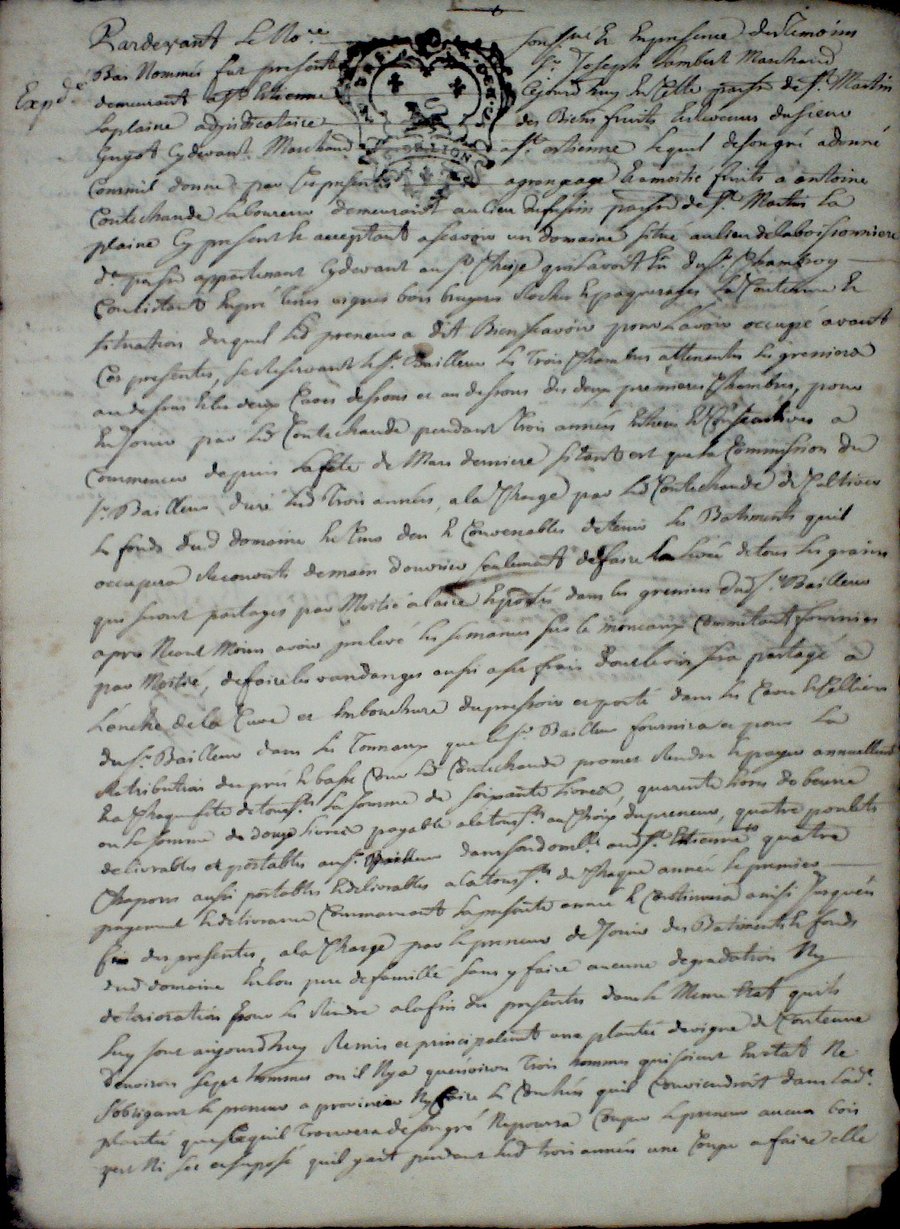 Pardevant Le No.re soussné Et Enpresence des Temoins
Bas Nommés fut present Sr. Joseph Lambert Marchand
Expd.é
demeurant a St. Etienne Cejourdhuy En Celle parsse de St. Martin
Laplaine adjudicataire des Biens fruits Et revenus du sieur
Guyot Cydevant Marchand a St. estienne Lequel desongré adonné
Comme il donne par Ces presentes agrangeage Et amoitié fruits a antoine
Contechaude Laboureur demeurant au lieu parsse de St. Martin La
plaine Cy present Et acceptant ascavoir un domaine situé aulieu delaboissonniere
de. parsse appartenant Cydevant au Sr. quilavoit Eu du Sr.
Consistant En pré Terres vignes bois bruyeres Rochers Et paquerages La Contenue Et
situation duquel Led preneur a dit Bien scavoir pour Lavoir occupé avant
Ces presentes, se reservant Le Sr. Bailleur Les Trois Chambres attenantes Les greniers
au dessus Et les deux Caves dessous et au dessous des deux premieres Chambres, pour
En Jouir par Led Contechaude pendant Trois années Entieres Et Consecutives a
Commencer depuis Lafête de Mars derniere si tant est que La Commission du
Sr. Bailleur dure Lesd Trois années, ala Charge par Led Contechaude de Cultiver
Le fonds dud domaine Et Convenables detenir Les Batiments quil
occupera Recouverts demain douvrier seulement defaire La Levée detous Les grains
qui seront partagés par Moitié alaire Et portés dans les greniers dud Sr. Bailleur
apres Neant Moins avoir prelevé Les semances sur Le monceaux Commetant fournies
par Moitié, defaire Les vandanges aussi a ses frais dont Levin sera partagé a
Lanche de La Cuve et Embouchure du pressoir et porté dans Les Cave Et Celliers
du Sr. Bailleur dans Les Tonnaux que Le Sr. Bailleur fournira et pour La
Retribution du pré Et basse Cour Led Contechaude promet Rendre Et payer annuellement
En Chaque fête detousts. La somme de soixante Livres, quarente Livres de beurre
ou La somme de douze Livres payable alatousts. au Choix dupreneur, quatre poulets
delivrables et portables au Sr. Bailleur dans son domlle. aud St. Etienne quatre
Chapons aussi portables Et delivrables alatousts. de Chaque année Le premier
payement Et delivrance Commancant La presente année Et Continuera ainsi Jusqu'en
fin des presentes, ala Charge par Le preneur de Jouir des Batiments Et fonds
dud domaine En bon pere defamille sans y faire aucune degradation Ny
deterioration pour Les Rendre alafin des presentes dans Le Meme Etat quils
Luy sont aujourdhuy Remis et principalemt une plantée devigne de Contenue
Denviron sept hommes ou il Nya quenviron Trois hommes qui soient En etat Ne
sobligeant Le preneur a provinier Ny faire Le quil Conviendroit dans Lade.
plantée que Ce quil Trouvera desongré Nepourra Couper Le preneur aucun bois
vert Ni sec et suposé quil y ait pendant Lesd trois années une Coupe a faire elle